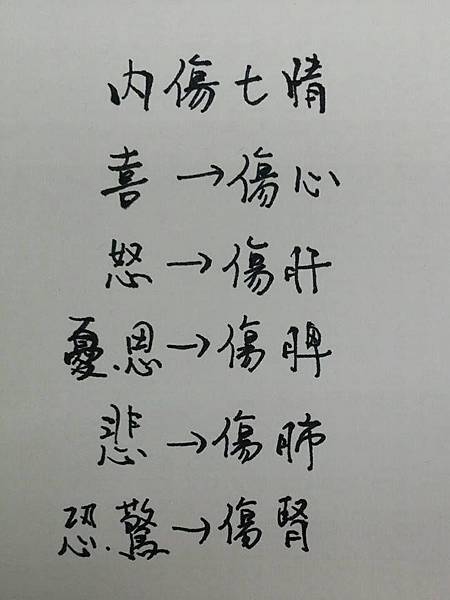 內傷七情
喜→傷心
怒→傷肝
憂.思→傷脾
悲→傷肺
恐.驚→傷腎